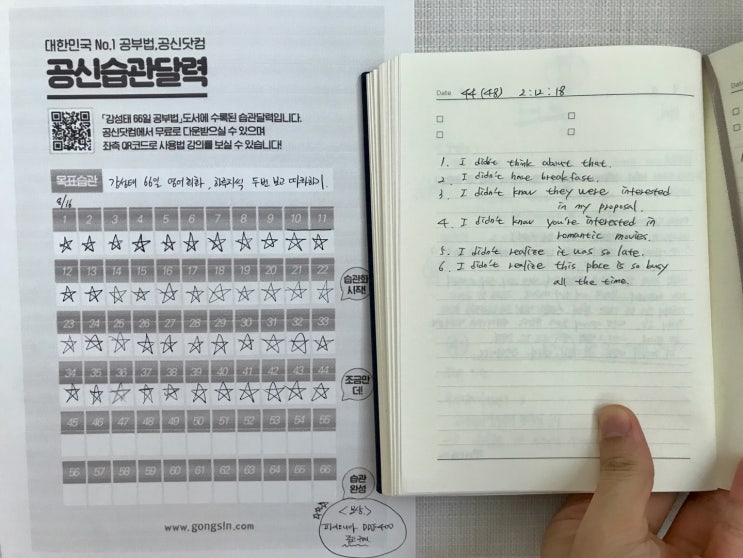 대한민국 No.1 공부법, 공신닷컴
공신습관달력
「강성태 66일 공부법」 도서에 수록된 습관달력입니다.
공신닷컴에서 무료로 다운받으실 수 있으며
좌측 QR코드로 사용법 강의를 보실 수 있습니다!
목표습관 강성태 66일 영어회화, 하루지식 두번 보고 따라하기.
8/16
1 2 3 4 5 6 7 8 9 10 11
12 13 14 15 16 17 18 19 20 21 22
습관화
시작!
23 24 25 26 27 28 29 30 31 32 33
34 35 36 37 38 39 40 41 42 43 44
조금만
더!
45 46 47 48 49 50 51 52 53 54 55
56 57 58 59 60 61 62 63 64 65 66
습관
완성
<보상>
DDJ-400
www.gongsin.com
Date 44 (48) 2:12:18
1. I didn't think about that.
2. I didn't have breakfast.
3. I didn't know they were interested
in my proposal.
4. I didn't know you're interested in
romantic movies.
5. I didn't realize it was so late.
6. I didn't realize this place is so busy
all the time.